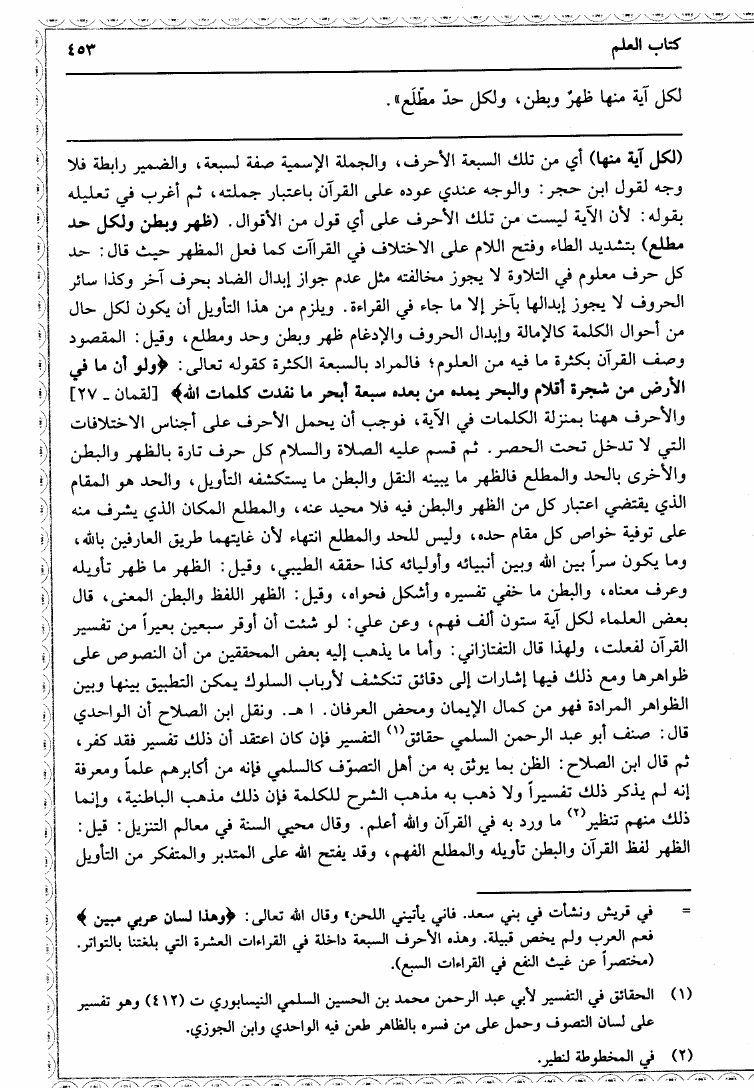 كتاب العلم
٤٥٣
لكل آية منها ظهرٌ وبطن، ولكل حدّ مطّلَع».
(لكل آية منها) أي من تلك السبعة الأحرف، والجملة الإسمية صفة لسبعة، والضمير رابطة فلا
وجه لقول ابن حجر: والوجه عندي عوده على القرآن باعتبار جملته، ثم أغرب في تعليله
بقوله: لأن الآية ليست من تلك الأحرف على أي قول من الأقوال. (ظهر وبطن ولكل حد
مطلع) بتشديد الطاء وفتح اللام على الاختلاف في القراآت كما فعل المظهر حيث قال: حد
كل حرف معلوم في التلاوة لا يجوز مخالفته مثل عدم جواز إبدال الضاد بحرف آخر وكذا سائر
الحروف لا يجوز إبدالها بآخر إلا ما جاء في القراءة. ويلزم من هذا التأويل أن يكون لكل حال
من أحوال الكلمة كالإمالة وإبدال الحروف والإدغام ظهر وبطن وحد ومطلع، وقيل: المقصود
وصف القرآن بكثرة ما فيه من العلوم؛ فالمراد بالسبعة الكثرة كقوله تعالى: ﴿ولو أن ما في
الأرض من شجرة أقلام والبحر يمده من بعده سبعة أبحر ما نفدت كلمات الله﴾ [لقمان ـ ٢٧]
والأحرف ههنا بمنزلة الكلمات في الآية، فوجب أن يحمل الأحرف على أجناس الاختلافات
التي لا تدخل تحت الحصر. ثم قسم عليه الصلاة والسلام كل حرف تارة بالظهر والبطن
والأخرى بالحد والمطلع فالظهر ما يبينه النقل والبطن ما يستكشفه التأويل، والحد هو المقام
الذي يقتضي اعتبار كل من الظهر والبطن فيه فلا محيد عنه، والمطلع المكان الذي يشرف منه
على توفية خواص كل مقام حده، وليس للحد والمطلع انتهاء لأن غايتهما طريق العارفين بالله،
وما يكون سراً بين الله وبين أنبيائه وأوليائه كذا حققه الطيبي، وقيل: الظهر ما ظهر تأويله
وعرف معناه، والبطن ما خفي تفسيره وأشكل فحواه، وقيل: الظهر اللفظ والبطن المعنى، قال
بعض العلماء لكل آية ستون ألف فهم، وعن علي: لو شئت أن أوقر سبعين بعيراً من تفسير
القرآن لفعلت، ولهذا قال التفتازاني: وأما ما يذهب إليه بعض المحققين من أن النصوص على
ظواهرها ومع ذلك فيها إشارات إلى دقائق تنكشف لأرباب السلوك يمكن التطبيق بينها وبين
الظواهر المرادة فهو من كمال الإيمان ومحض العرفان. ا هـ. ونقل ابن الصلاح أن الواحدي
قال: صنف أبو عبد الرحمن السلمي حقائق(١) التفسير فإن كان اعتقد أن ذلك تفسير فقد كفر،
ثم قال ابن الصلاح: الظن بما يوثق به من أهل التصوّف كالسلمي فإنه من أكابرهم علماً ومعرفة
إنه لم يذكر ذلك تفسيراً ولا ذهب به مذهب الشرح للكلمة فإن ذلك مذهب الباطنية، وإنما
ذلك منهم تنظير(٢) ما ورد به في القرآن والله أعلم. وقال محيي السنة في معالم التنزيل: قيل:
الظهر لفظ القرآن والبطن تأويله والمطلع الفهم، وقد يفتح الله على المتدبر والمتفكر من التأويل
= في قريش ونشأت في بني سعد. فاني يأتيني اللحن» وقال الله تعالى: ﴿وهذا لسان عربي مبين﴾
فعم العرب ولم يخص قبيلة. وهذه الأحرف السبعة داخلة في القراءات العشرة التي بلغتنا بالتواتر.
(مختصراً عن غيث النفع في القراءات السبع).
(١) الحقائق في التفسير لأبي عبد الرحمن محمد بن الحسين السلمي النيسابوري ت (٤١٢) وهو تفسير
على لسان التصوف وحمل على من فسره بالظاهر طعن فيه الواحدي وابن الجوزي.
(٢) في المخطوطة لنطير.